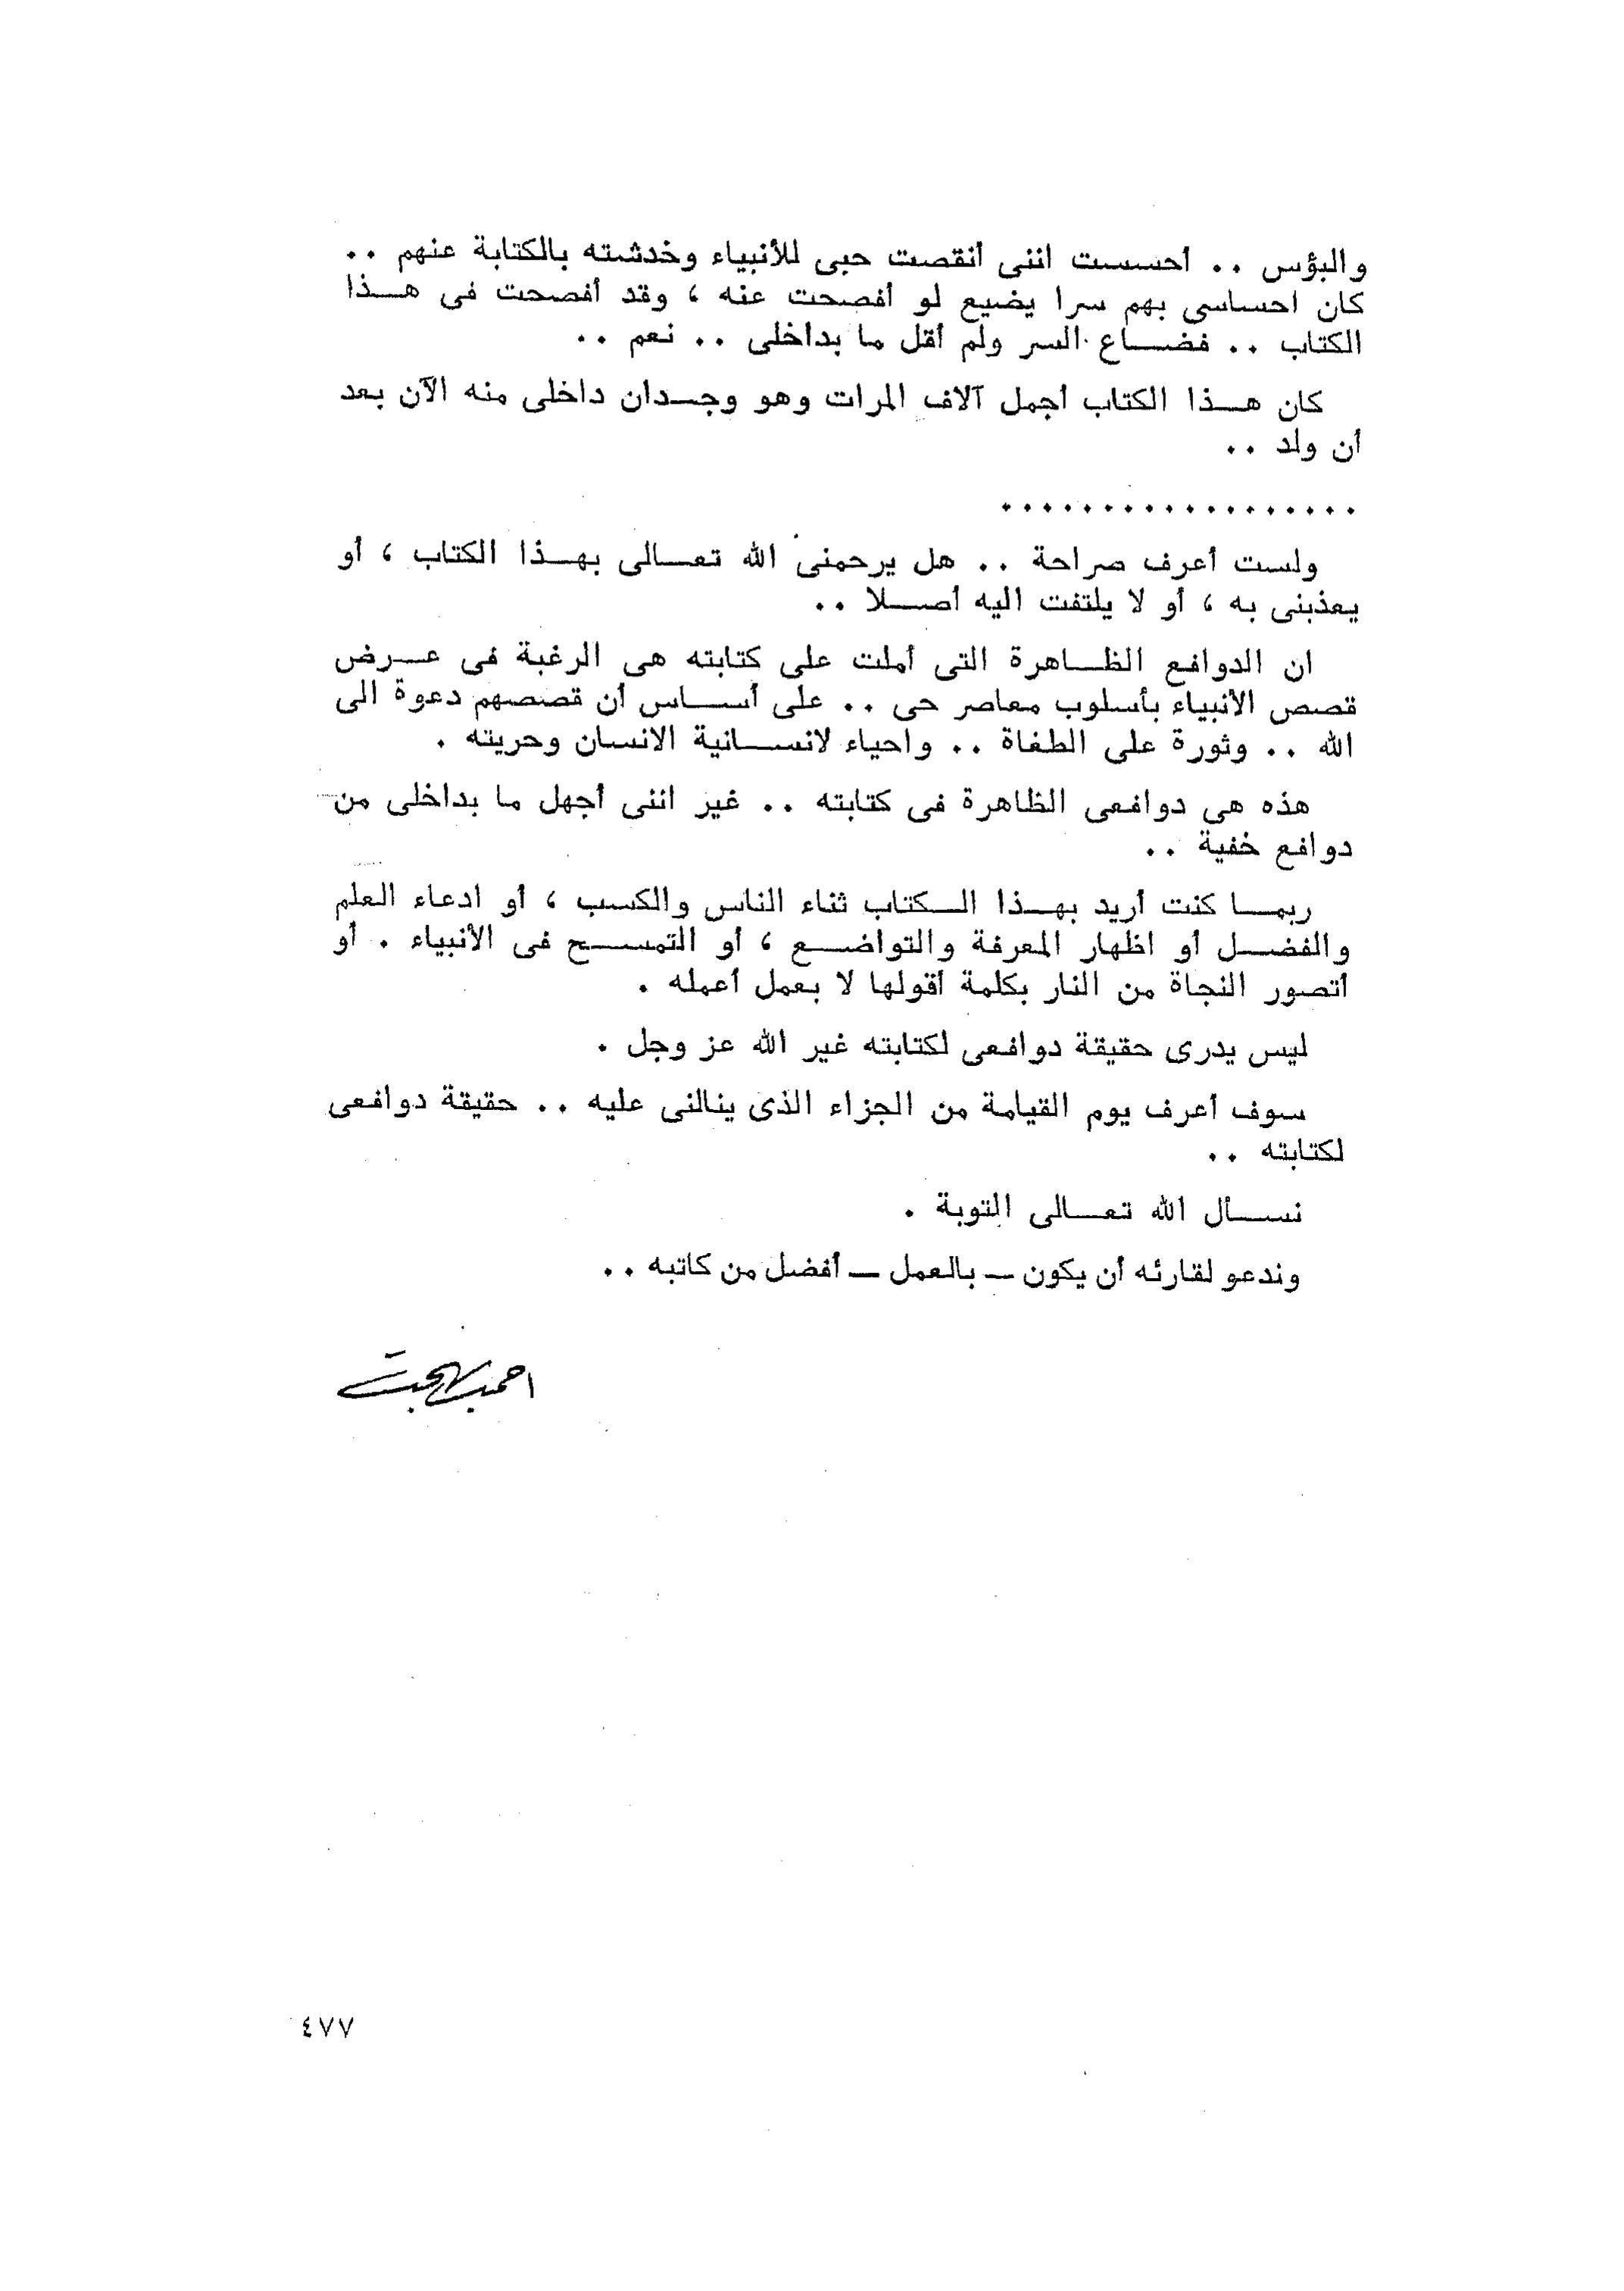 والبؤس .. أحسست اننى أنقصت حبى للأنبياء وخدشته بالكتابة عنهم ..
كان احساسى بهم سرا يضيع لو أفصحت عنه ، وقد أفصحت فى هذا
الكتاب .. فضاع السر ولم أقل ما بداخلى .. نعم ..
كان هذا الكتاب أجمل آلاف المرات وهو وجدان داخلى منه الآن بعد
أن ولد ..
.................
ولست أعرف صراحة .. هل يرحمنى الله تعالى بهذا الكتاب ، أو
يعذبنى به ، أو لا يلتفت اليه أصلا ..
ان الدوافع الظاهرة التى أملت على كتابته هى الرغبة فى عرض
قصص الأنبياء بأسلوب معاصر حى .. على أساس أن قصصهم دعوة الى
الله .. وثورة على الطغاة .. واحياء لانسانية الانسان وحريته .
هذه هى دوافعى الظاهرة فى كتابته .. غير اننى أجهل ما بداخلى من
دوافع خفية ..
ربما كنت أريد بهذا الكتاب ثناء الناس والكسب ، أو ادعاء العلم
والفضل أو اظهار المعرفة والتواضع ، أو التمسح فى الأنبياء . أو
أتصور النجاة من النار بكلمة أقولها لا بعمل أعمله .
ليس يدرى حقيقة دوافعى لكتابته غير الله عز وجل .
سوف أعرف يوم القيامة من الجزاء الذى ينالنى عليه .. حقيقة دوافعى
لكتابته ..
نسأل الله تعالى التوبة .
وندعو لقارئه أن يكون — بالعمل — أفضل من كاتبه ..
احمد بهجت
٤٧٧